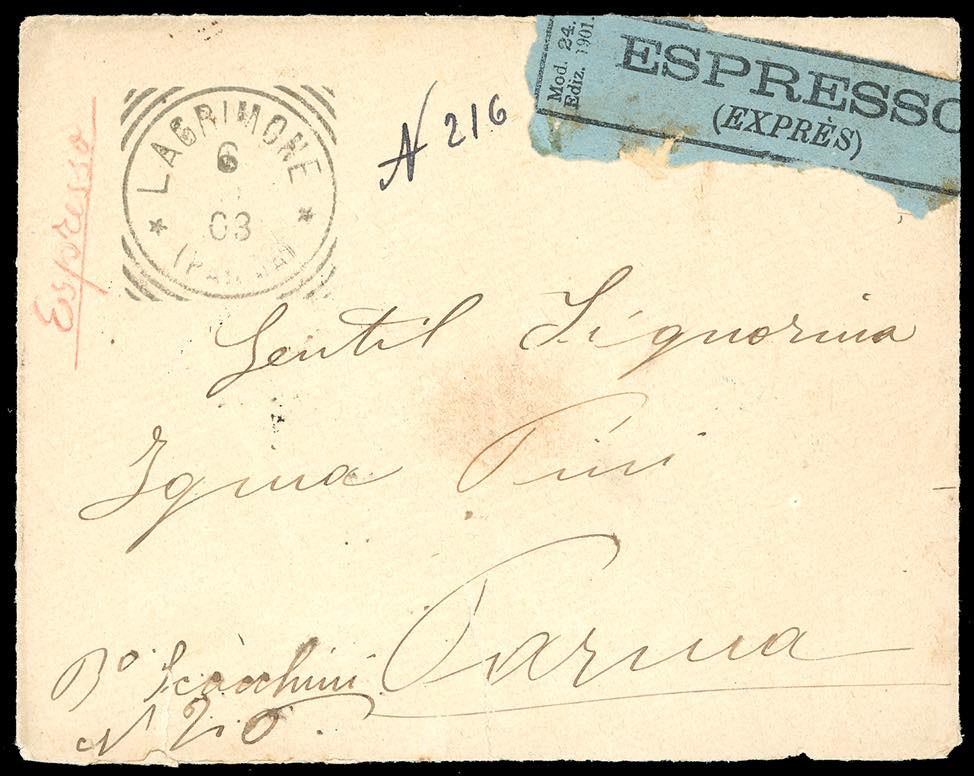 Mod. 24.
Ediz. 1901.
ESPRESSO
(EXPRÈS)
LAGRIMONE
6
03
(PARMA)
N 216
Espresso
Gentil Signorina
Igina Pini
Parma
Bº Scacchini
N 20.